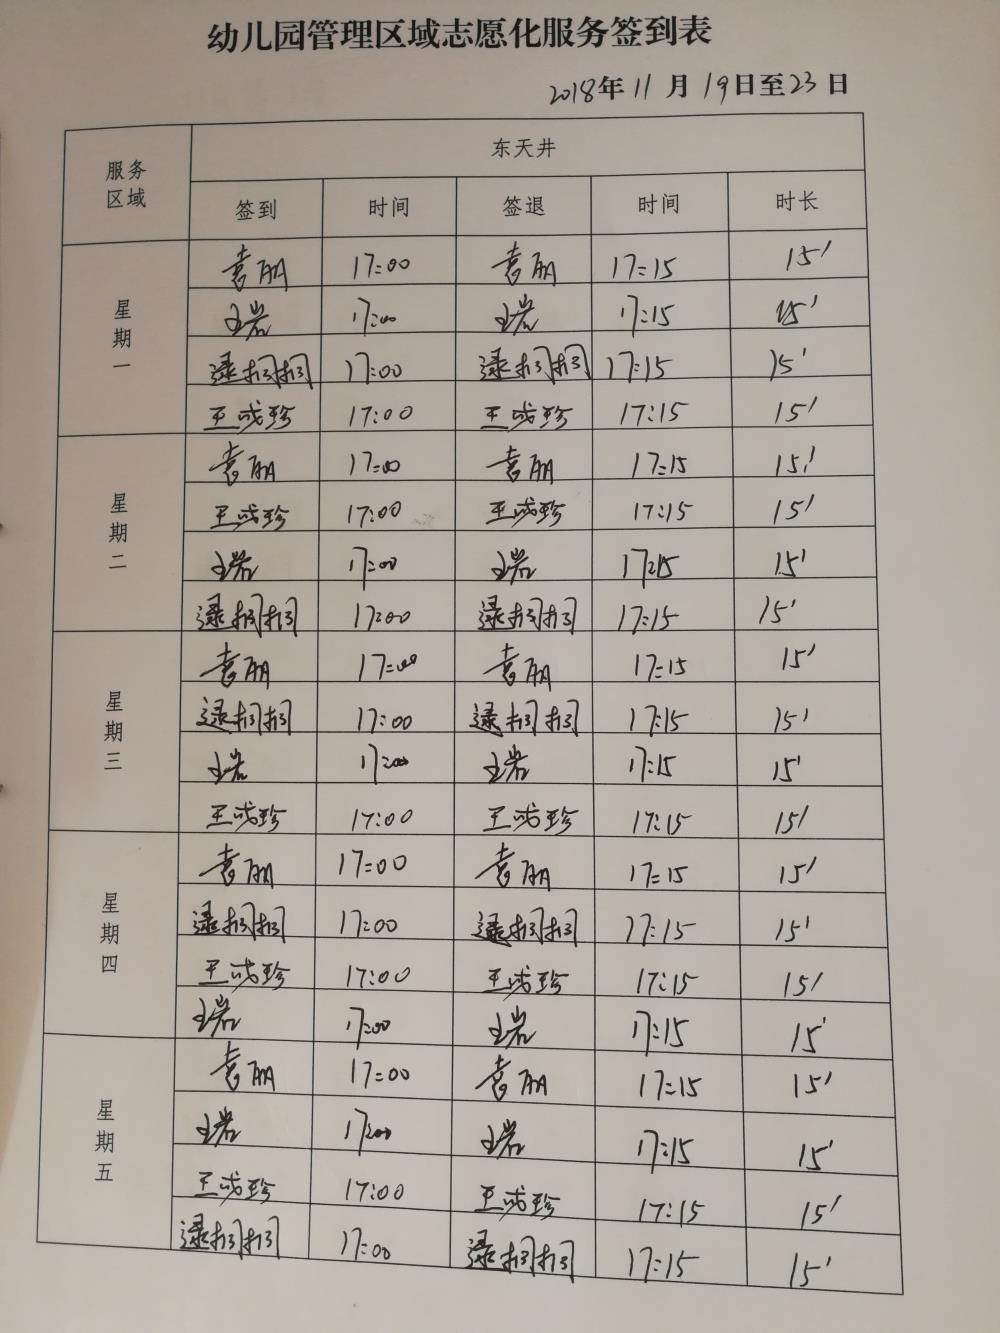 幼儿园管理区域志愿化服务签到表
2018年11月19日至23日
服务区域 东天井
签到 时间 签退 时间 时长
星期一
袁丽 17:00 袁丽 17:15 15'
王岩 17:00 王岩 17:15 15'
逯桐桐 17:00 逯桐桐 17:15 15'
王成珍 17:00 王成珍 17:15 15'
星期二
袁丽 17:00 袁丽 17:15 15'
王成珍 17:00 王成珍 17:15 15'
王岩 17:00 王岩 17:15 15'
逯桐桐 17:00 逯桐桐 17:15 15'
星期三
袁丽 17:00 袁丽 17:15 15'
逯桐桐 17:00 逯桐桐 17:15 15'
王岩 17:00 王岩 17:15 15'
王成珍 17:00 王成珍 17:15 15'
星期四
袁丽 17:00 袁丽 17:15 15'
逯桐桐 17:00 逯桐桐 17:15 15'
王成珍 17:00 王成珍 17:15 15'
王岩 17:00 王岩 17:15 15'
星期五
袁丽 17:00 袁丽 17:15 15'
王岩 17:00 王岩 17:15 15'
王成珍 17:00 王成珍 17:15 15'
逯桐桐 17:00 逯桐桐 17:15 15'